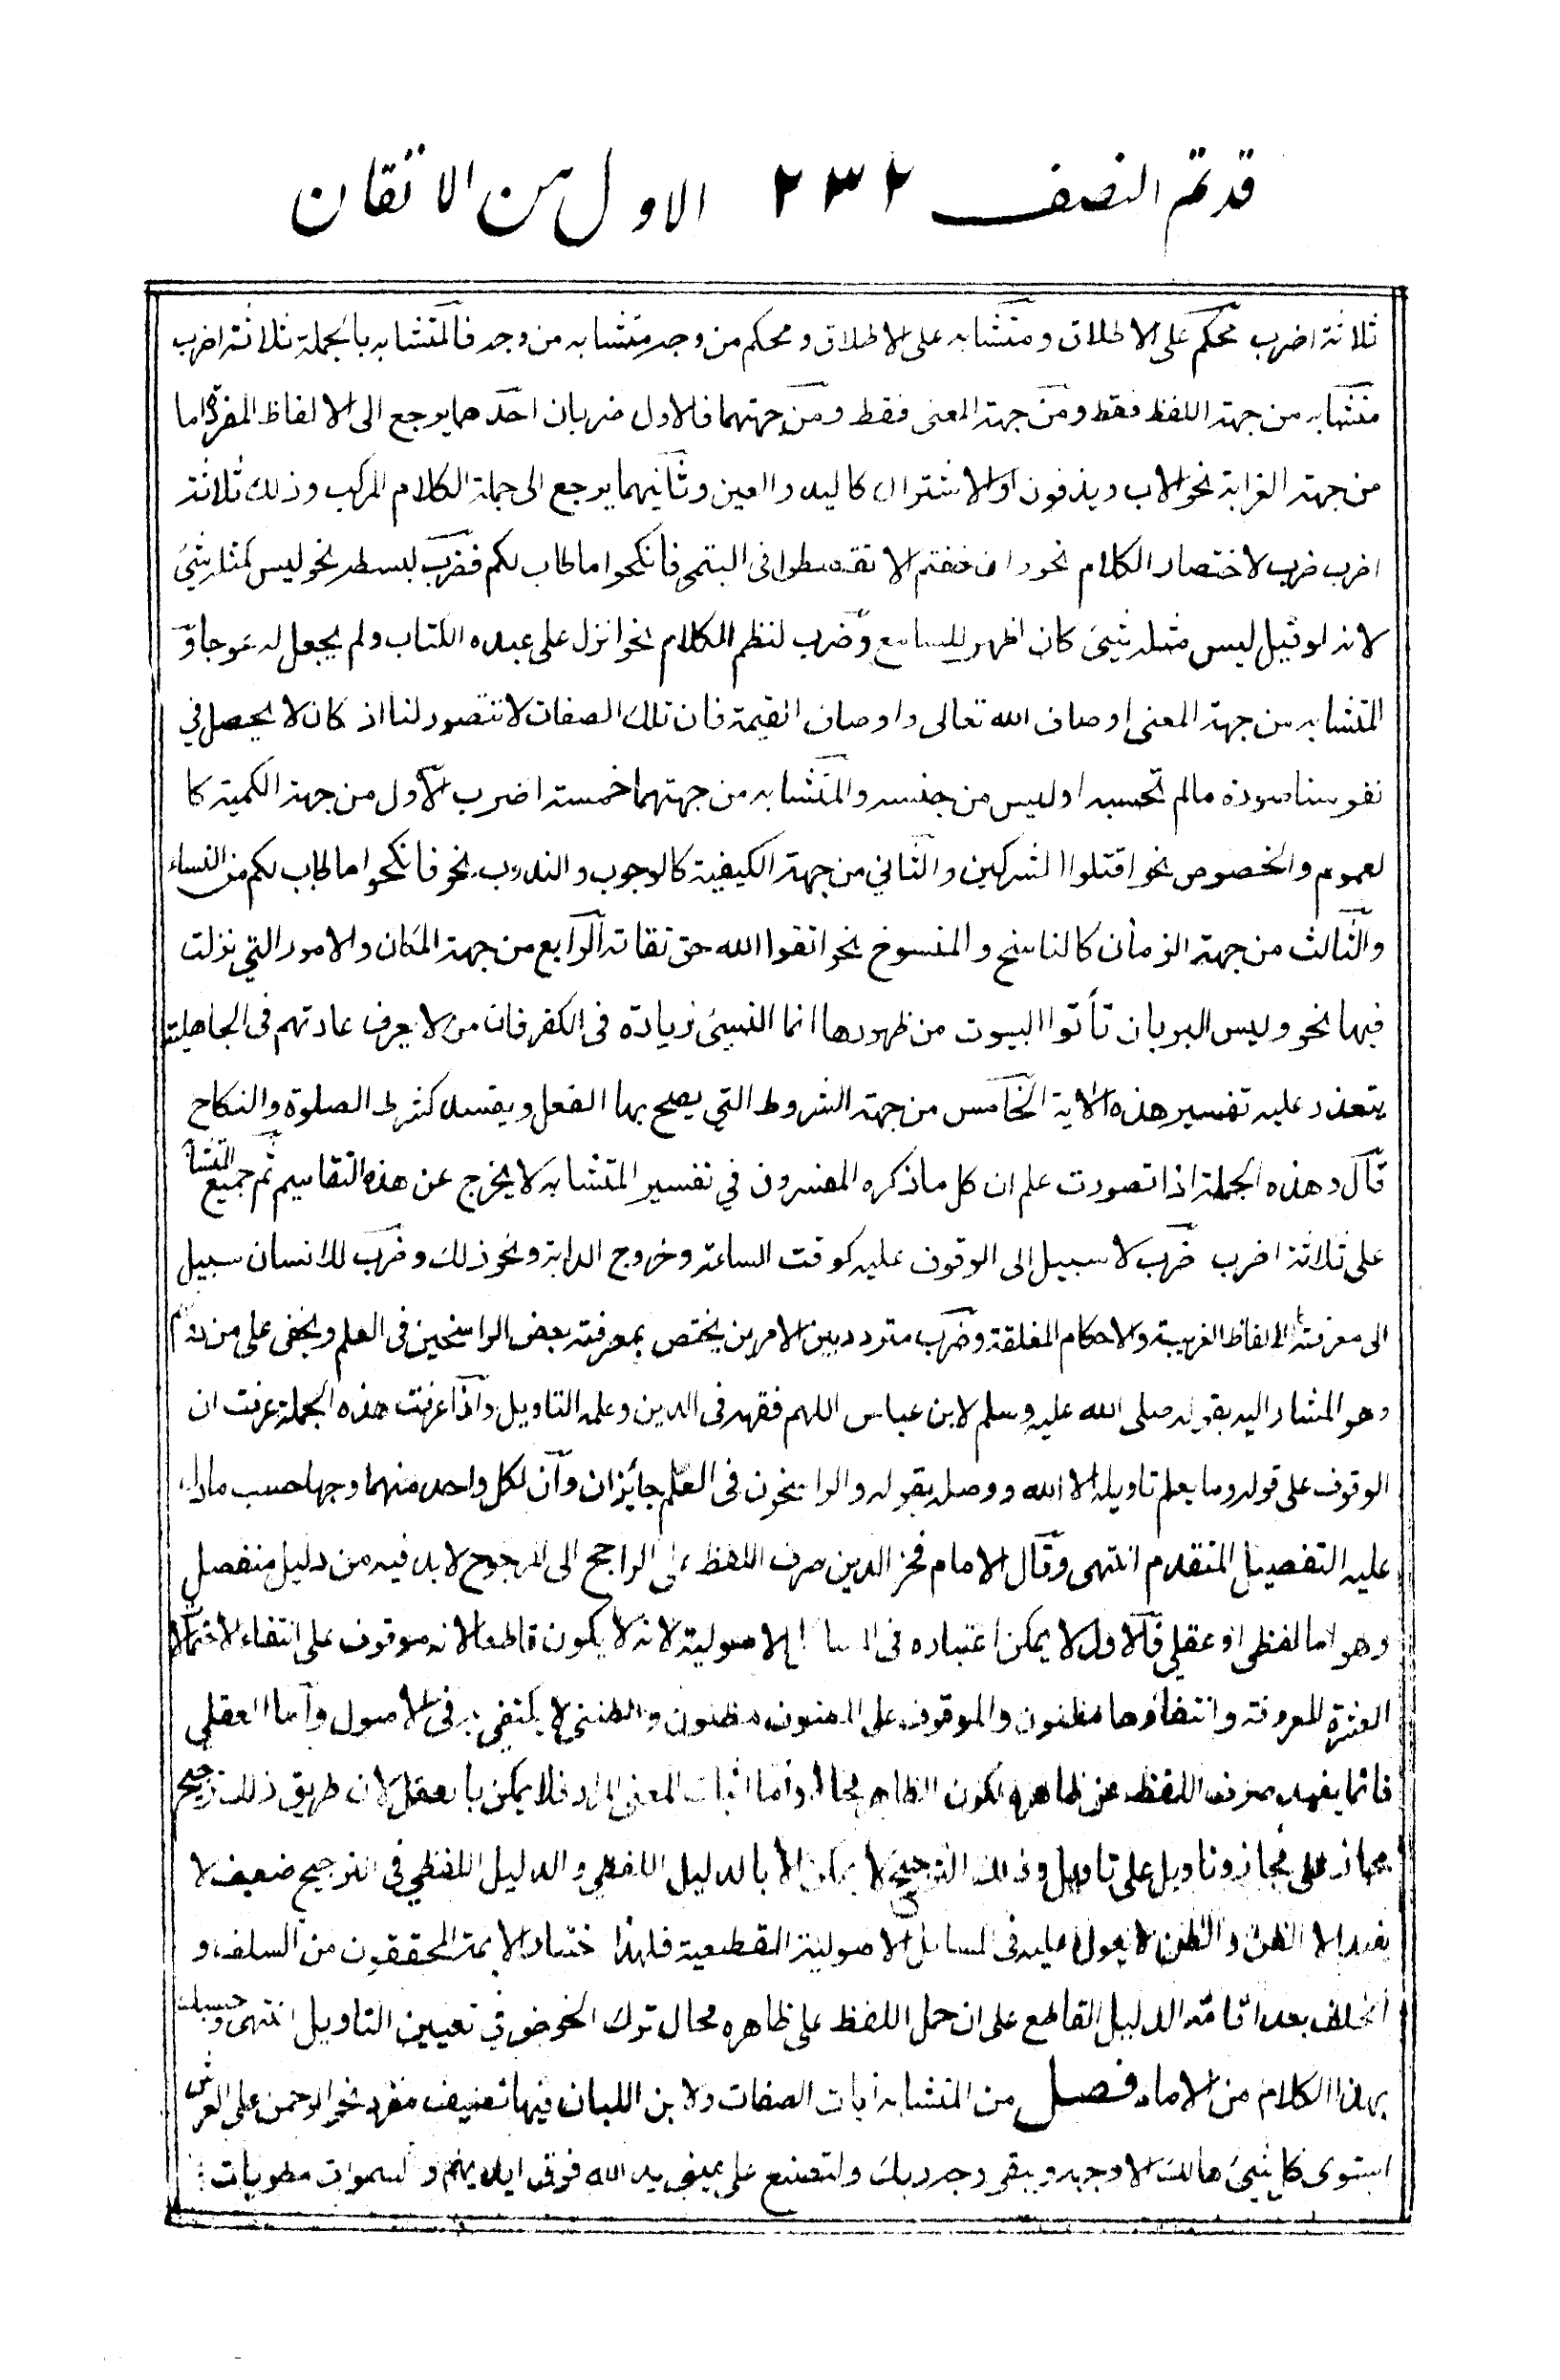 قد تم النصف ٢٣٢ الاول من الاتقان
ثلاثة اضرب محكم على الاطلاق ومتشابه على الاطلاق ومحكم من وجه متشابه من وجه فالمتشابه بالجملة ثلاثة اضرب
متشابه من جهة اللفظ فقط ومن جهة المعنى فقط ومن جهتهما فالاول ضربان احدهما يرجع الى الالفاظ المفردة اما
من جهة الغرابة نحو الاب ويزفون او الاشتراك كاليد والعين وثانيهما يرجع الى جملة الكلام المركب وذلك ثلاثة
اضرب ضرب لاختصار الكلام نحو وان خفتم الا تقسطوا فى اليتمى فانكحوا ما طاب لكم فضرب لبسطه نحو ليس كمثله شئ
لانه لو قيل ليس مثله شيئ كان اظهر للسامع وضرب لنظم الكلام نحو انزل على عبده الكتاب ولم يجعل له عوجا و
المتشابه من جهة المعنى اوصاف الله تعالى واوصاف القيمة فان تلك الصفات لا تتصور لنا اذ كان لا يحصل في
نفوسنا صورة ما لم نحسبه او ليس من جنسه والمتشابه من جهتهما خمسة اضرب الاول من جهة الكمية كا
لعموم والخصوص نحو اقتلوا المشركين والثاني من جهة الكيفية كالوجوب والندب نحو فانكحوا ما طاب لكم من النساء
والثالث من جهة الزمان كالناسخ والمنسوخ نحو اتقوا الله حق تقاته الرابع من جهة المكان والامور التي نزلت
فيها نحو وليس البر بان تأتوا البيوت من ظهورها انما النسيئ زيادة فى الكفر فان من لا يعرف عادتهم فى الجاهلية
يتعذر عليه تفسير هذه الاية الخامس من جهة الشروط التي يصح بها الفعل ويفسد كشرط الصلوة والنكاح
قال وهذه الجملة اذا تصورت علم ان كل ما ذكره المفسرون في تفسير المتشابه لا يخرج عن هذه التقاسيم ثم جميع المتشابه
على ثلاثة اضرب ضرب لا سبيل الى الوقوف عليه كوقت الساعة وخروج الدابة ونحو ذلك وضرب للانسان سبيل
الى معرفته كالالفاظ الغريبة والاحكام المغلقة وضرب متردد بين الامرين يختص بمعرفته بعض الراسخين فى العلم ويخفى على من دونهم
وهو المشار اليه بقوله صلى الله عليه وسلم لابن عباس اللهم فقهه فى الدين وعلمه التاويل واذا عرفت هذه الجملة عرفت ان
الوقوف على قوله وما يعلم تاويله الا الله ووصله بقوله والراسخون فى العلم جائزان وان لكل واحد منهما وجها حسب ما دل
عليه التفصيل المتقدم انتهى وقال الامام فخر الدين صرف اللفظ عن الراجح الى المرجوح لا بد فيه من دليل منفصل
وهو اما لفظى او عقلي فالاول لا يمكن اعتباره فى المسائل الاصولية لانه لا يكون قاطعا لانه موقوف على انتفاء الاحتمالات
العشرة المعروفة وانتفاؤها مظنون والموقوف على المظنون مظنون والظنى لا يكتفي به فى الاصول واما العقلي
فانما يفيد صرف اللفظ عن ظاهره لكون الظاهر محالا واما اثبات المعنى المراد فلا يمكن بالعقل لان طريق ذلك ترجيح
مجاز على مجاز وتاويل على تاويل وذلك الترجيح لا يمكن الا بالدليل اللفظي والدليل اللفظي فى الترجيح ضعيف لا
يفيد الا الظن والظن لا يعول عليه فى المسائل الاصولية القطعية فلهذا اختار الائمة المحققون من السلف و
الخلف بعد اقامة الدليل القاطع على ان حمل اللفظ على ظاهره محال ترك الخوض في تعيين التاويل انتهى وحسبك
بهذا الكلام من الامام فصل من المتشابه آيات الصفات ولابن اللبان فيها تصنيف مفرد نحو الرحمن على العرش
استوى كل شيئ هالك الا وجهه ويبقى وجه ربك ولتصنع على عينى يد الله فوق ايديهم والسموات مطويات